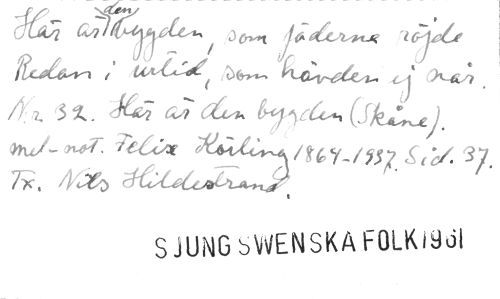 Här är den bygden, som fäderna röjde
Redan i urtid, som hävden ej når.
Nr 32. Här är den bygden (Skåne).
mel-not. Felix Körling 1864-1937. Sid. 37.
Tx. Nils Hildestrand.
SJUNG SWENSKA FOLK 1961